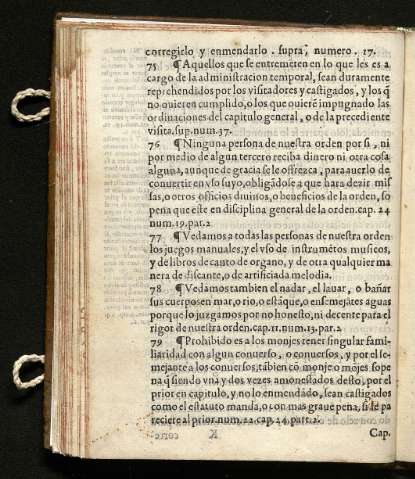 corregirlo y enmendarlo. supra, numero. 17.
75 ¶ Aquellos que se entremeten en lo que les es a
cargo de la administracion temporal, sean duramente
reprehendidos por los visitadores y castigados, y los q̃
no quieren cumplido, o los que quierẽ impugnad las
ordinaciones del capitulo general, o de la precedente
visita. sup. num. 37.
76 ¶ Ninguna persona de nuestra orden por si, ni
por medio de algun tercero reciba dinero ni otra cosa
alguna, aunque de gracia se le offrezca, para auerlo de
conuertir en vso suyo, obligãdose a que hara dezir mis
sas, o otros officios diuinos, o beneficios de la orden, so
pena que este en disciplina general de la orden. cap. 24
num. 19. par. 2
77 ¶ Vedamos a todas las personas de nuestra orden
los juegos manuales, y el vso de instrumẽtos musicos,
y de libros de canto de organo, y de otra qualquier ma
nera de discante, o de artificiada melodia.
78 ¶ Vedamos tambien el nadar, el lauar, o bañar
sus cuerpos en mar, o rio, o estãque, o en semejãtes aguas
porque lo juzgamos por no honesto, ni decente para el
rigor de nuestra orden. cap. 11. num. 13. par. 2
79 ¶ Prohibido es a los monjes tener singular fami-
liaridad con algun conuerso, o conuersos, y por el se-
mejante a los conuersos, tãbien cõ monje o mõjes so pe
na q̃ siendo vna y dos vezes amonestados desto, por el
prior en capitulo, y no lo enmendãdo, sean castigados
como el estatuto manda, o con mas graue pena, si le pa
reciere al prior. num. 22. cap. 24. part. 2.
K
Cap.